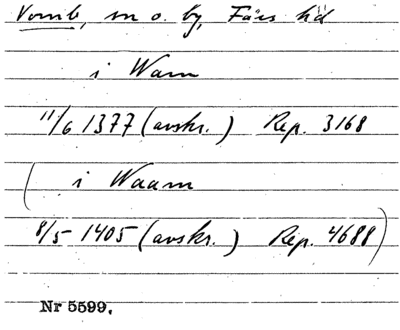 Vomb, sn o. by, Färs hd
i Wam
11/6 1377 (avskr.) Rep. 3168
( i Waam
8/5 1405 (avskr.) Rep. 4688)
Nr 5599.